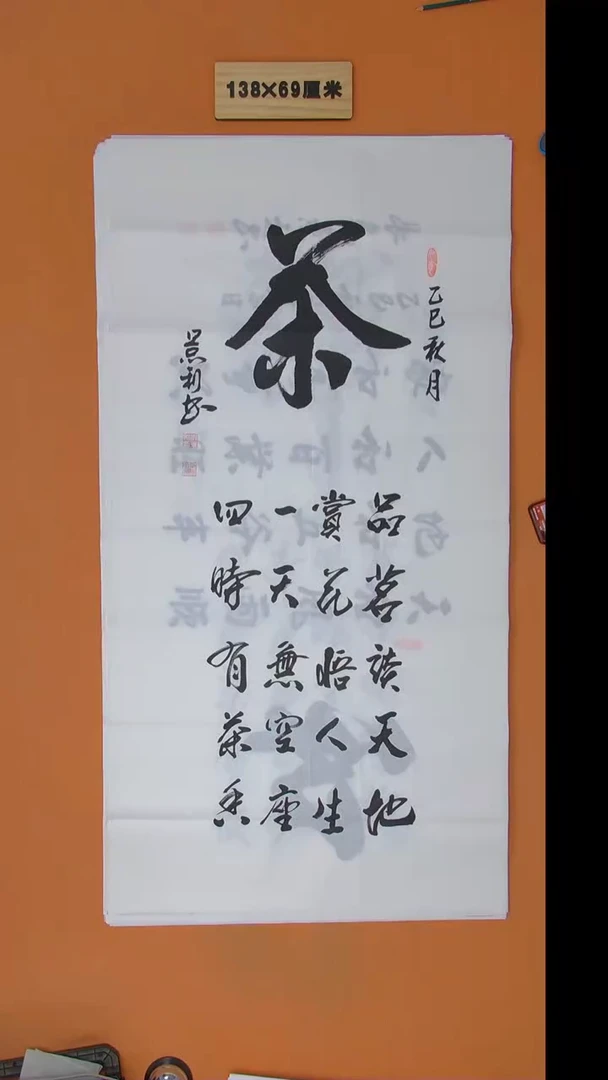 138×69厘米
茶
乙巳秋月
品茗談天地
賞花悟人生
一天無空座
四時有茶香
景利书